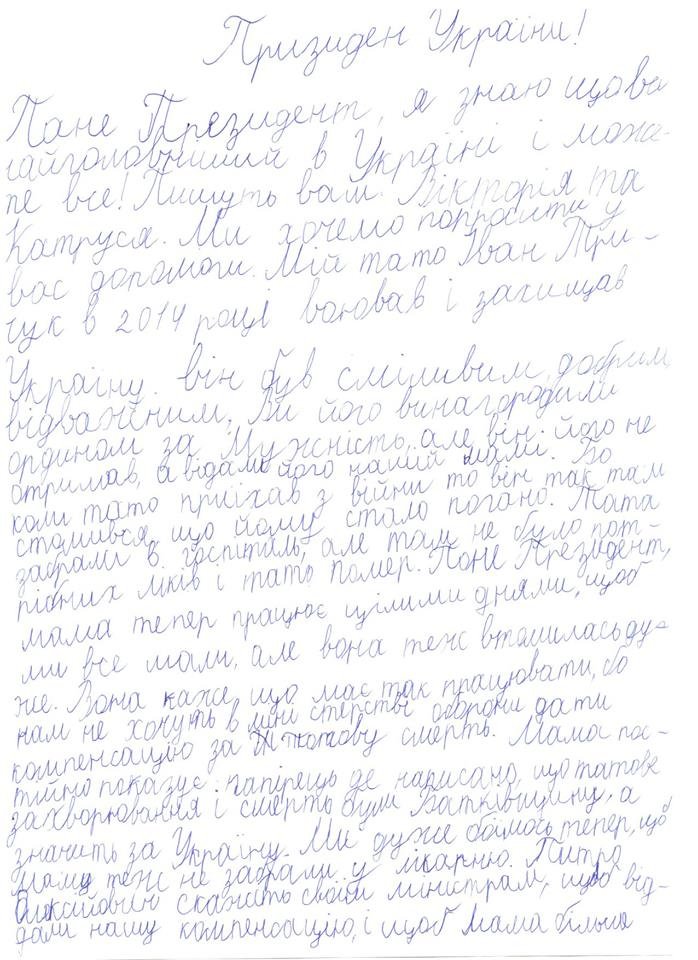 Призиден України!
Пане Президент, я знаю що ви
найголовніший в Україні і може-
те все! Пишуть вам Вікторія та
Катруся. Ми хочемо попросити у
вас допомоги. Мій тато Іван Три-
чук в 2014 році воював і захищав
Україну. він був сміливим, добрим,
відважним, Ви його винагородили
ордином за Мужність, але він його не
отримав, а відали його нашій мамі. Бо
коли тато приїхав з війни то він так там
стомився, що йому стало погано. Тата
забрали в госпіталь, але там не було пот-
рібних ліків і тато помер. Пане Президент,
мама тепер працює цілими днями, щоб
ми все мали, але вона теж втомилась ду-
же. Вона каже, що має так працювати, бо
нам не хочуть в міністерстві оборони дати
компенсацію за татову смерть. Мама пос-
тійно показує папірець де написано, що татове
захворювання і смерть були Батківщину, а
значить за Україну. Ми дуже боїмось тепер, щоб
маму теж не забрали у лікарню. Питро
Олексійович скажіть своїм міністрам, щоб від-
дали нашу компенсацію, і щоб мама більше